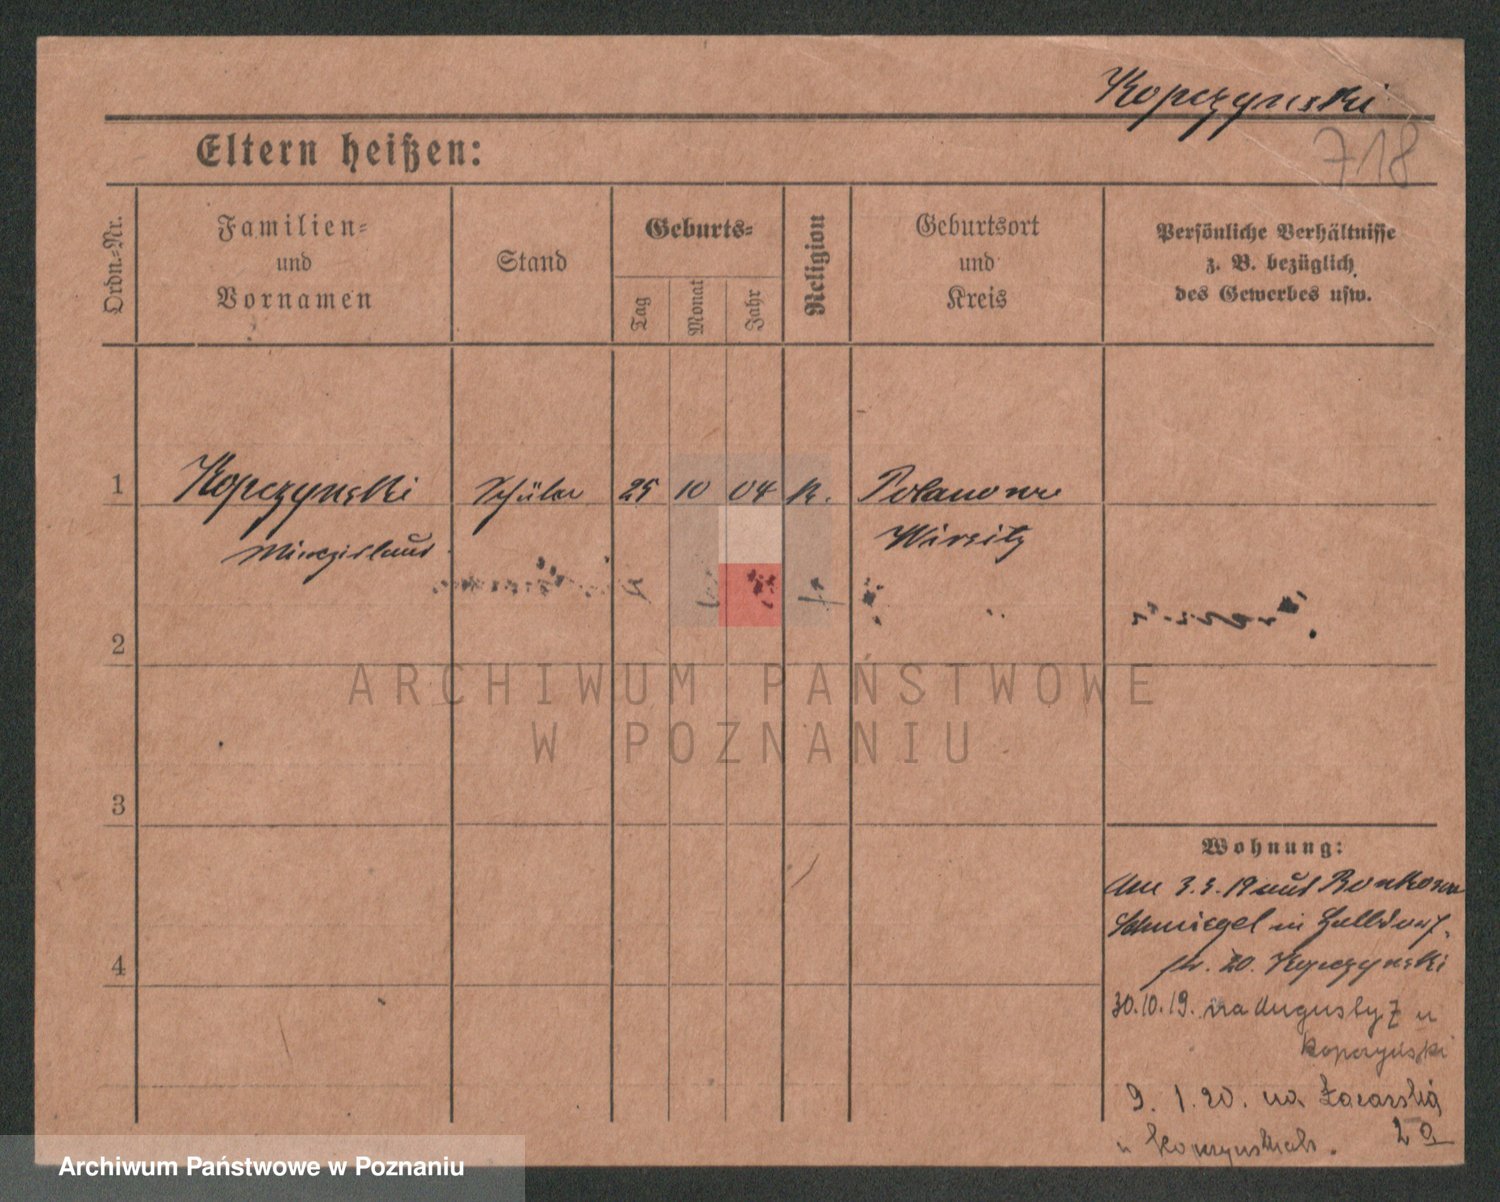 Kopczynski
718
Eltern heißen:
Ordn.-Nr.
Familien-
und
Vornamen
Stand
Geburts-
Tag
Monat
Jahr
Religion
Geburtsort
und
Kreis
Persönliche Verhältnisse
z. B. bezüglich
des Gewerbes usw.
1 Kopczynski Schüler 25 10 04 k. Polanowo
Mieczislaus Wirsitz
2
ARCHIWUM PAŃSTWOWE
W POZNANIU
3
Wohnung:
Am 3.3.19 aus
Schmiegel in
4
20. Kopczynski
30.10.19. na Augusty 7 u
Kopczyński
9. 1. 20. na
Archiwum Państwowe w Poznaniu